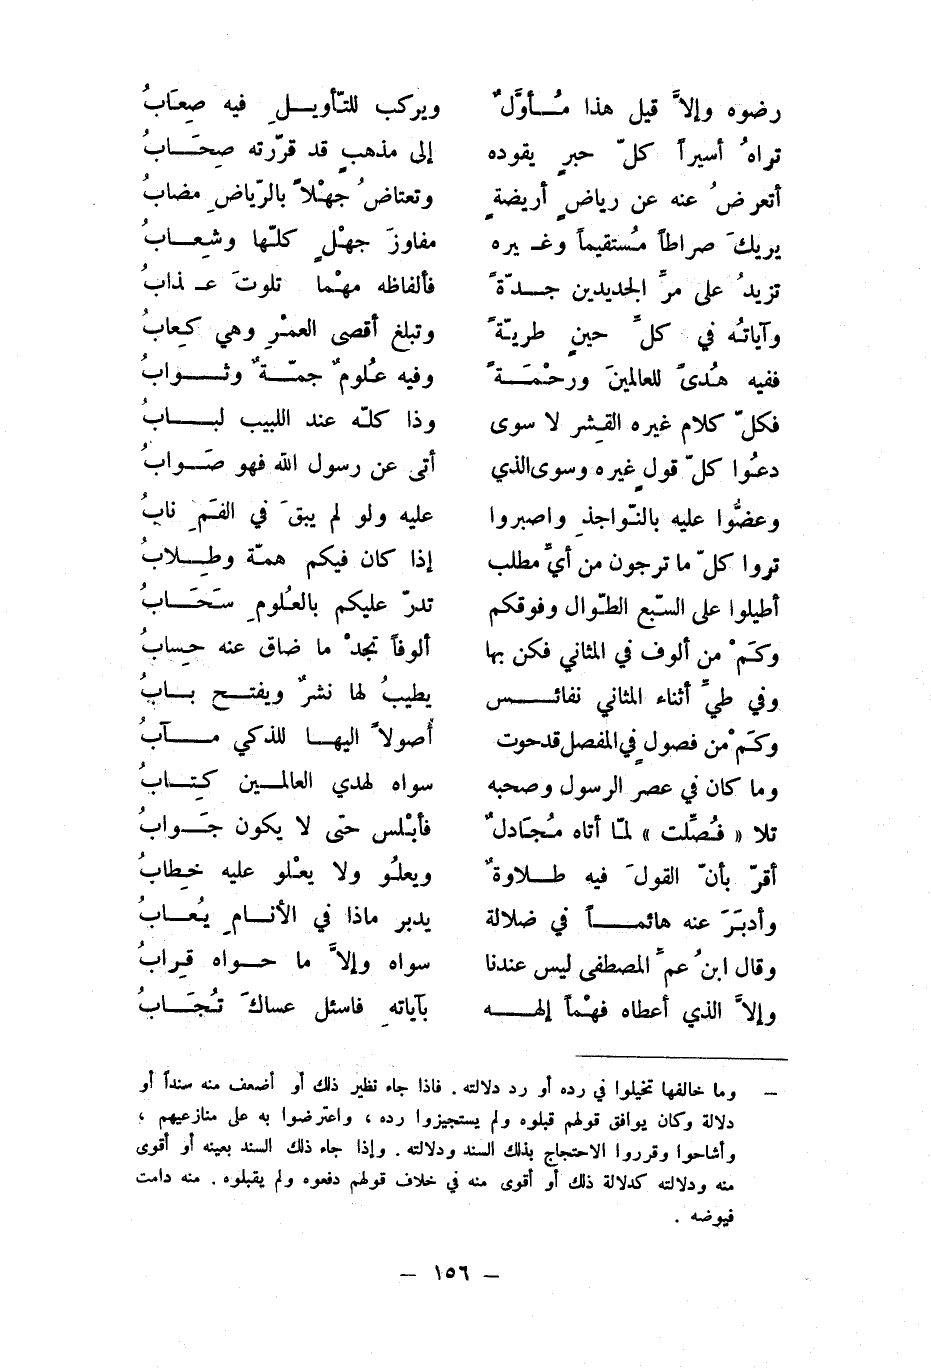 رضوه وإلاَّ قيل هذا مُــأوَّلٌ ويركب للتّأويــلِ فيه صِعَابُ
تراهُ أسيراً كلّ حبرٍ يقوده إلى مذهبٍ قد قررّته صِحَــابُ
أتعرضُ عنه عن رياضٍ أريضةٍ وتعتاضُ جهْلاً بالرّياضِ مضابُ
يريكَ صراطاً مُستقيماً وغـيره مفاوزَ جهْلٍ كلّها وشِعــابُ
تزيدُ على مرِّ الجديدين جــدّةً فألفاظه مهْما تلوتَ عـذابُ
وآياتُه في كلِّ حينٍ طريّةً وتبلغ أقصى العمْرِ وهي كِعابُ
ففيه هُدىً للعالمينَ ورحْمَــةً وفيه عُلومٌ جمّــةٌ وثــوابُ
فكلّ كلام غيره القِشر لا سوى وذا كلّه عند اللبيب لبــابُ
دعُوا كلّ قولٍ غيره وسوى الذي أتى عن رسول الله فهو صَــوابُ
وعضُّوا عليه بالنّواجذِ واصبروا عليه ولو لم يبقَ في الفَمِ نابُ
تروا كلّ ما ترجون من أيِّ مطلب إذا كان فيكم همّة وطِــلابُ
أطيلوا على السّبع الطّوال وفوقكم تدرّ عليكم بالعُلومِ سَحَــابُ
وكَمْ من ألوف في المثاني فكن بها ألوفاً تجدْ ما ضاق عنه حِسابُ
وفي طيِّ أثناء المثاني نفائــس يطيبُ لها نشرٌ ويفتــح بــابُ
وكَمْ من فصولٍ في المفصل قد حوت أُصولاً اليهــا للذكي مــآبُ
وما كان في عصر الرسول وصحبه سواه لهدي العالمــين كِتــابُ
تلا « فُصِّلت » لمّا أتاه مُجَادلٌ فأبْلس حتّى لا يكون جَــوابُ
أقرّ بأنّ القولَ فيه طــلاوةٌ ويعلُو ولا يعْلو عليه خِطابُ
وأدبَرَ عنه هائمــاً في ضلالة يدبر ماذا في الأنــامِ يُعــابُ
وقال ابنُ عمِّ المصطفى ليس عندنا سواه وإلاَّ ما حــواه قِرابُ
وإلاَّ الذي أعطاه فهْماً إلهــه بآياتهِ فاسئل عساكَ تُجَــابُ
– وما خالفها تخيلوا في رده أو رد دلالته . فاذا جاء نظير ذلك أو أضعف منه سنداً أو
دلالة وكان يوافق قولهم قبلوه ولم يستجيزوا رده ، واعترضوا به على منازعيهم ،
وأشاحوا وقرروا الاحتجاج بذلك السند ودلالته . وإذا جاء ذلك السند بعينه أو أقوى
منه ودلالته كدلالة ذلك أو أقوى منه في خلاف قولهم دفعوه ولم يقبلوه . منه دامت
فيوضه .
– ١٥٦ –